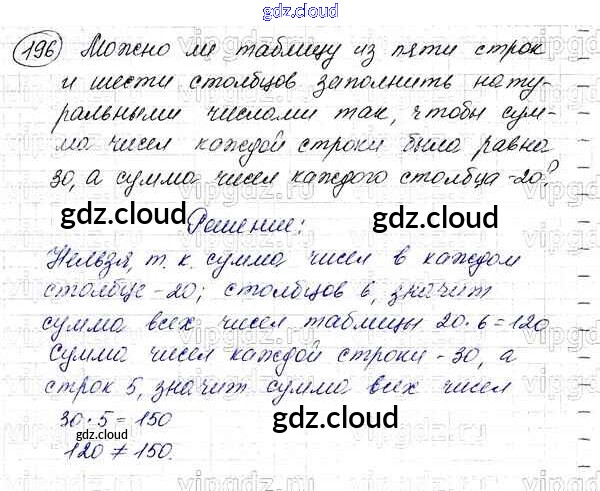 gdz.cloud
196 Можно ли таблицу из пяти строк
и шести столбцов заполнить нату-
ральными числами так, чтобы сум-
ма чисел каждой строки была равна
30, а сумма чисел каждого столбца - 20?
gdz.cloud Решение: gdz.cloud
Нельзя, т. к. сумма чисел в каждом
столбце - 20; столбцов 6, значит
сумма всех чисел таблицы 20·6=120
Сумма чисел каждой строки - 30, а
строк 5, значит сумма всех чисел
gdz.cloud
30·5=150
gdz.cloud
120≠150.
gdz.cloud